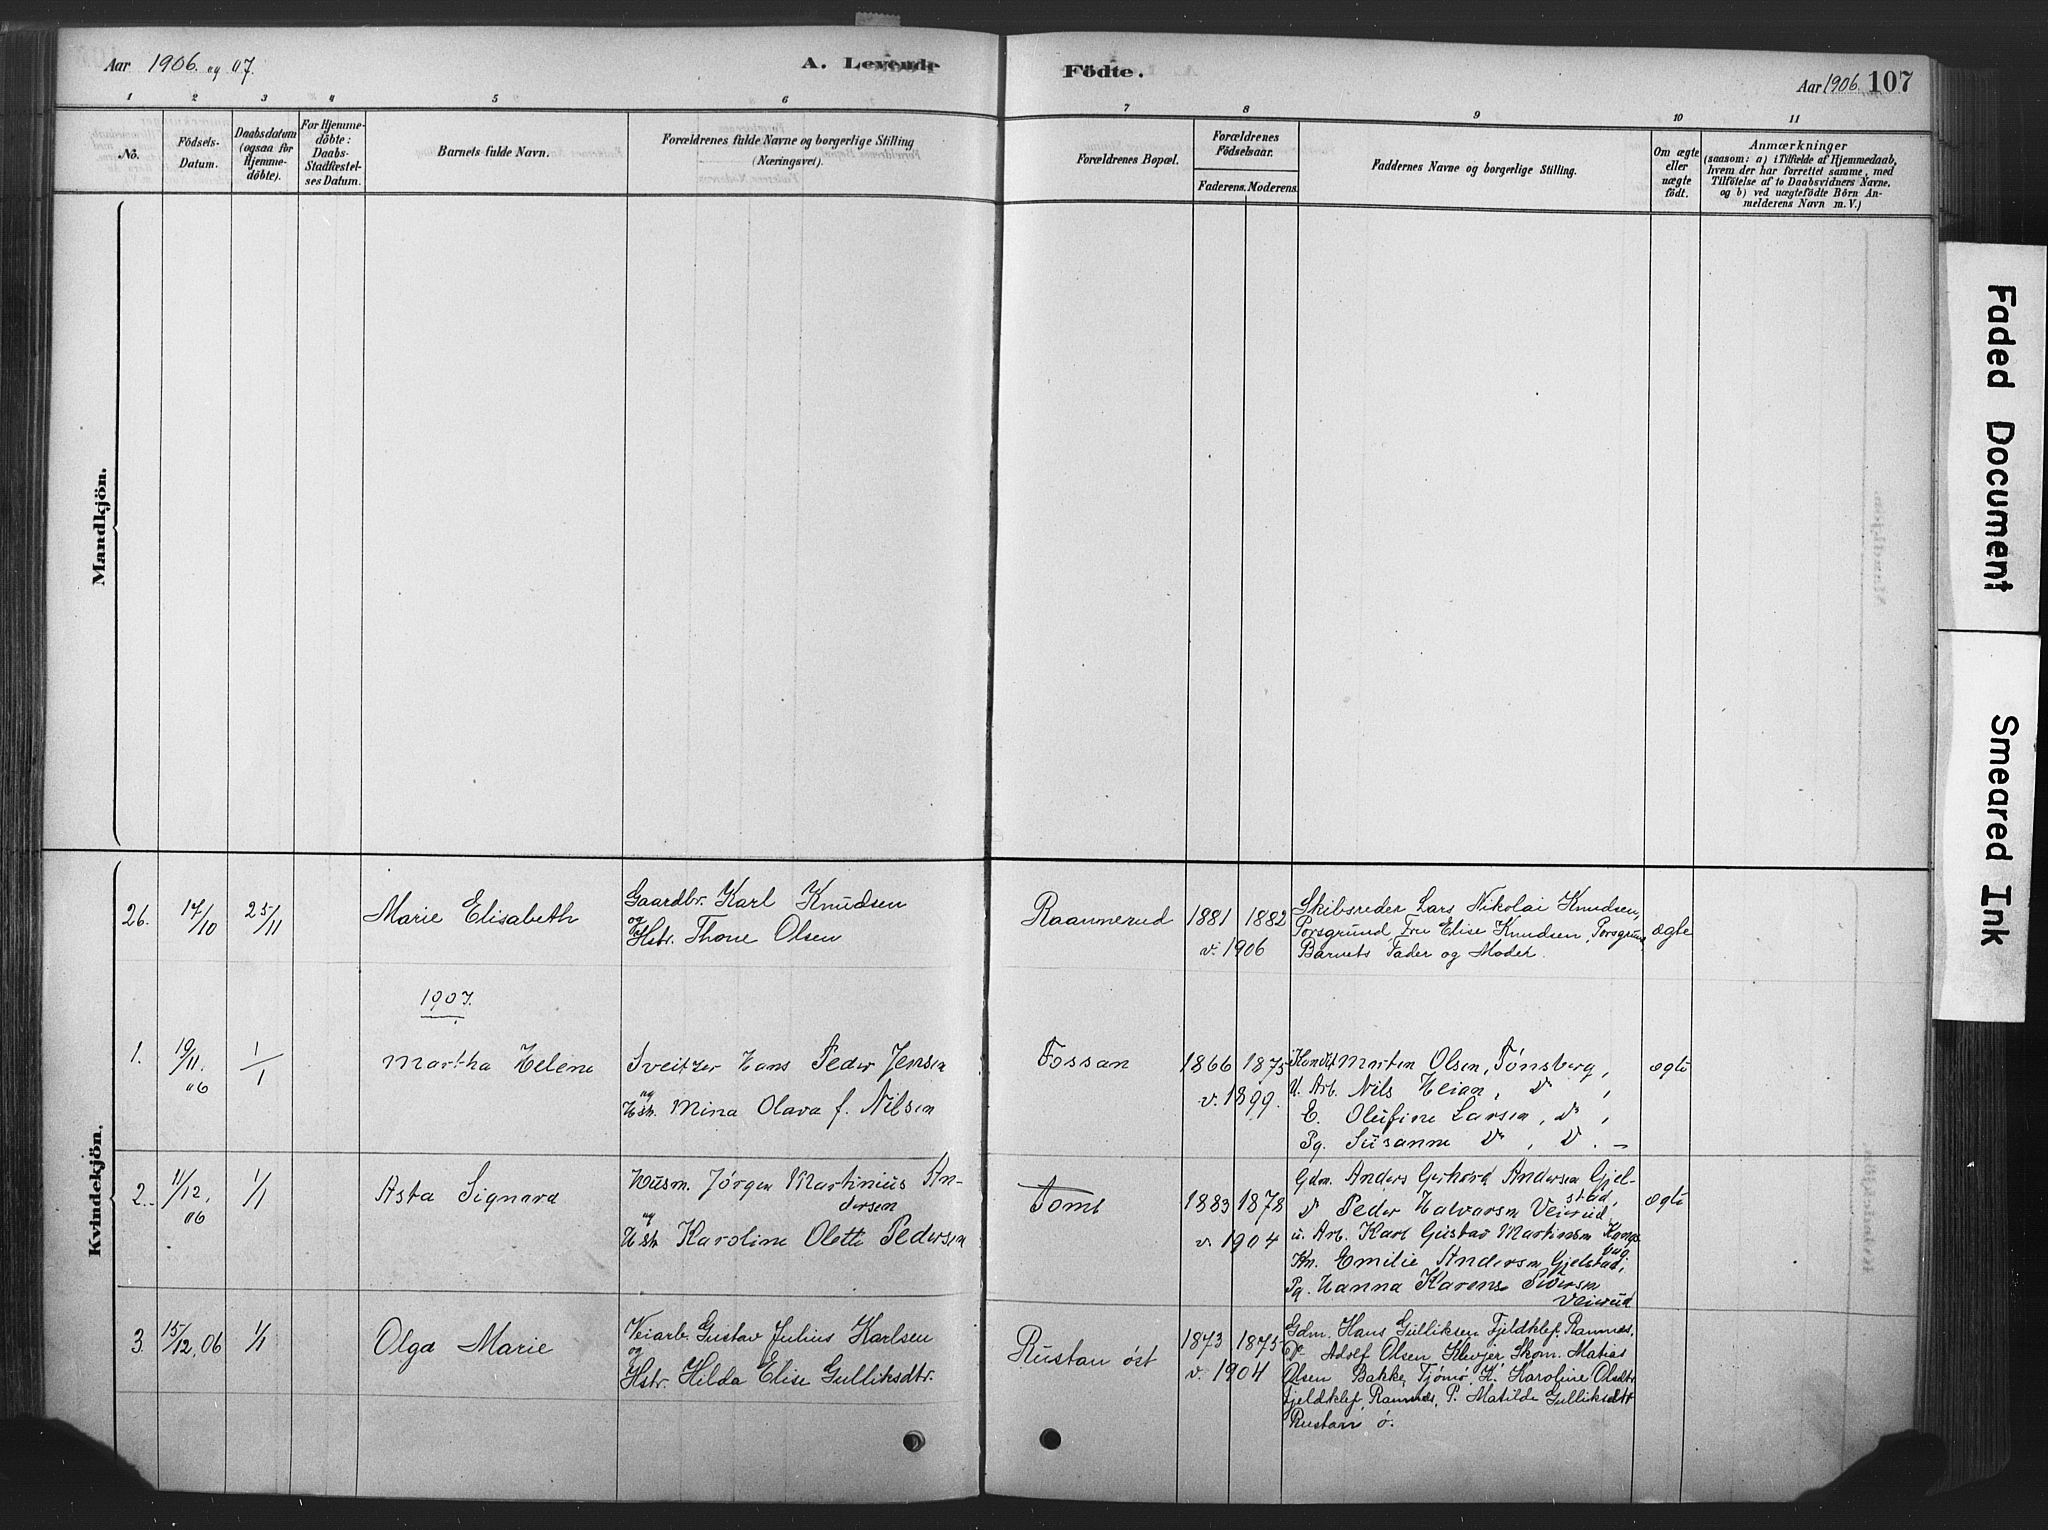 Aar 1906 og 07.
A. Levende
Födte.
Aar 1906. 107
1 2 3 4 5 6 7 8 9 10 11
No.
Födsels-
Datum.
Daabsdatum
(ogsaa for
Hjemme-
döbte).
For Hjemme-
döbte:
Daabs-
Stadfæstel-
ses Datum.
Barnets fulde Navn.
Forældrenes fulde Navne og borgerlige Stilling
(Næringsvei).
Forældrenes Bopæl.
Forældrenes
Födselsaar.
Faderens. Moderens.
Faddernes Navne og borgerlige Stilling.
Om ægte
eller
uægte
födt.
Anmærkninger
(saasom: a) i Tilfælde af Hjemmedaab,
hvem der har forrettet samme, med
Tilföielse af to Daabsvidners Navne.
og b) ved uægtefödte Börn An-
melderens Navn m. V.)
Mandkjön.
Kvindekjön.
26. 17/10 25/11 Marie Elisabeth
Gaardbr. Karl Knudsen
og
Hstr. Thone Olsen
Raannerud
1881 1882
v. 1906
Skibsreder Lars Nikolai Knudsen,
Porsgrund Fru Elise Knudsen, Porsgrund
Barnets Fader og Moder.
ægte
1907.
1. 19/11. 06 1/1 Martha Helene
Sveitzer Hans Peder Jensen
og
Hstr. Mina Olava f. Nilsen
Fossan
1866 1875
v. 1899.
Morten Olsen, Tønsberg,
U. Arb. Nils Heian,
E. Olufine Larsen,
Pg. Susanne
ægte
2. 11/12. 06 1/1 Asta Signara
Husm. Jørgen Martinius An-
dersen
og
Hstr. Karoline Oletti Pedersen
Tomt
1883 1878
v. 1904
Gdm. Anders Gerhard Andersen Gjel-
stad,
Peder Halvorsen Veierud,
u. Arb. Karl Gustav Martinsen
Kn. Emilie Andersen Gjelstad,
Pg. Hanna Karense Siversen
Veierud
ægte
3. 15/12. 06 1/1 Olga Marie
Veiarb. Gustav Julius Karlsen
og
Hstr. Hilda Elise Gulliksdtr.
Rustan øst
1873 1875
v. 1904
Gdm. Hans Gulliksen Fjeldklef, Ramnes,
Adolf Olsen Klevjer, Skom. Matias
Olsen Bakke, Tjømø, K. Karoline Olsdtr
Fjeldklef, Ramnes, P. Matilde Gulliksdtr
Rustan ø.
Faded Document
Smeared Ink